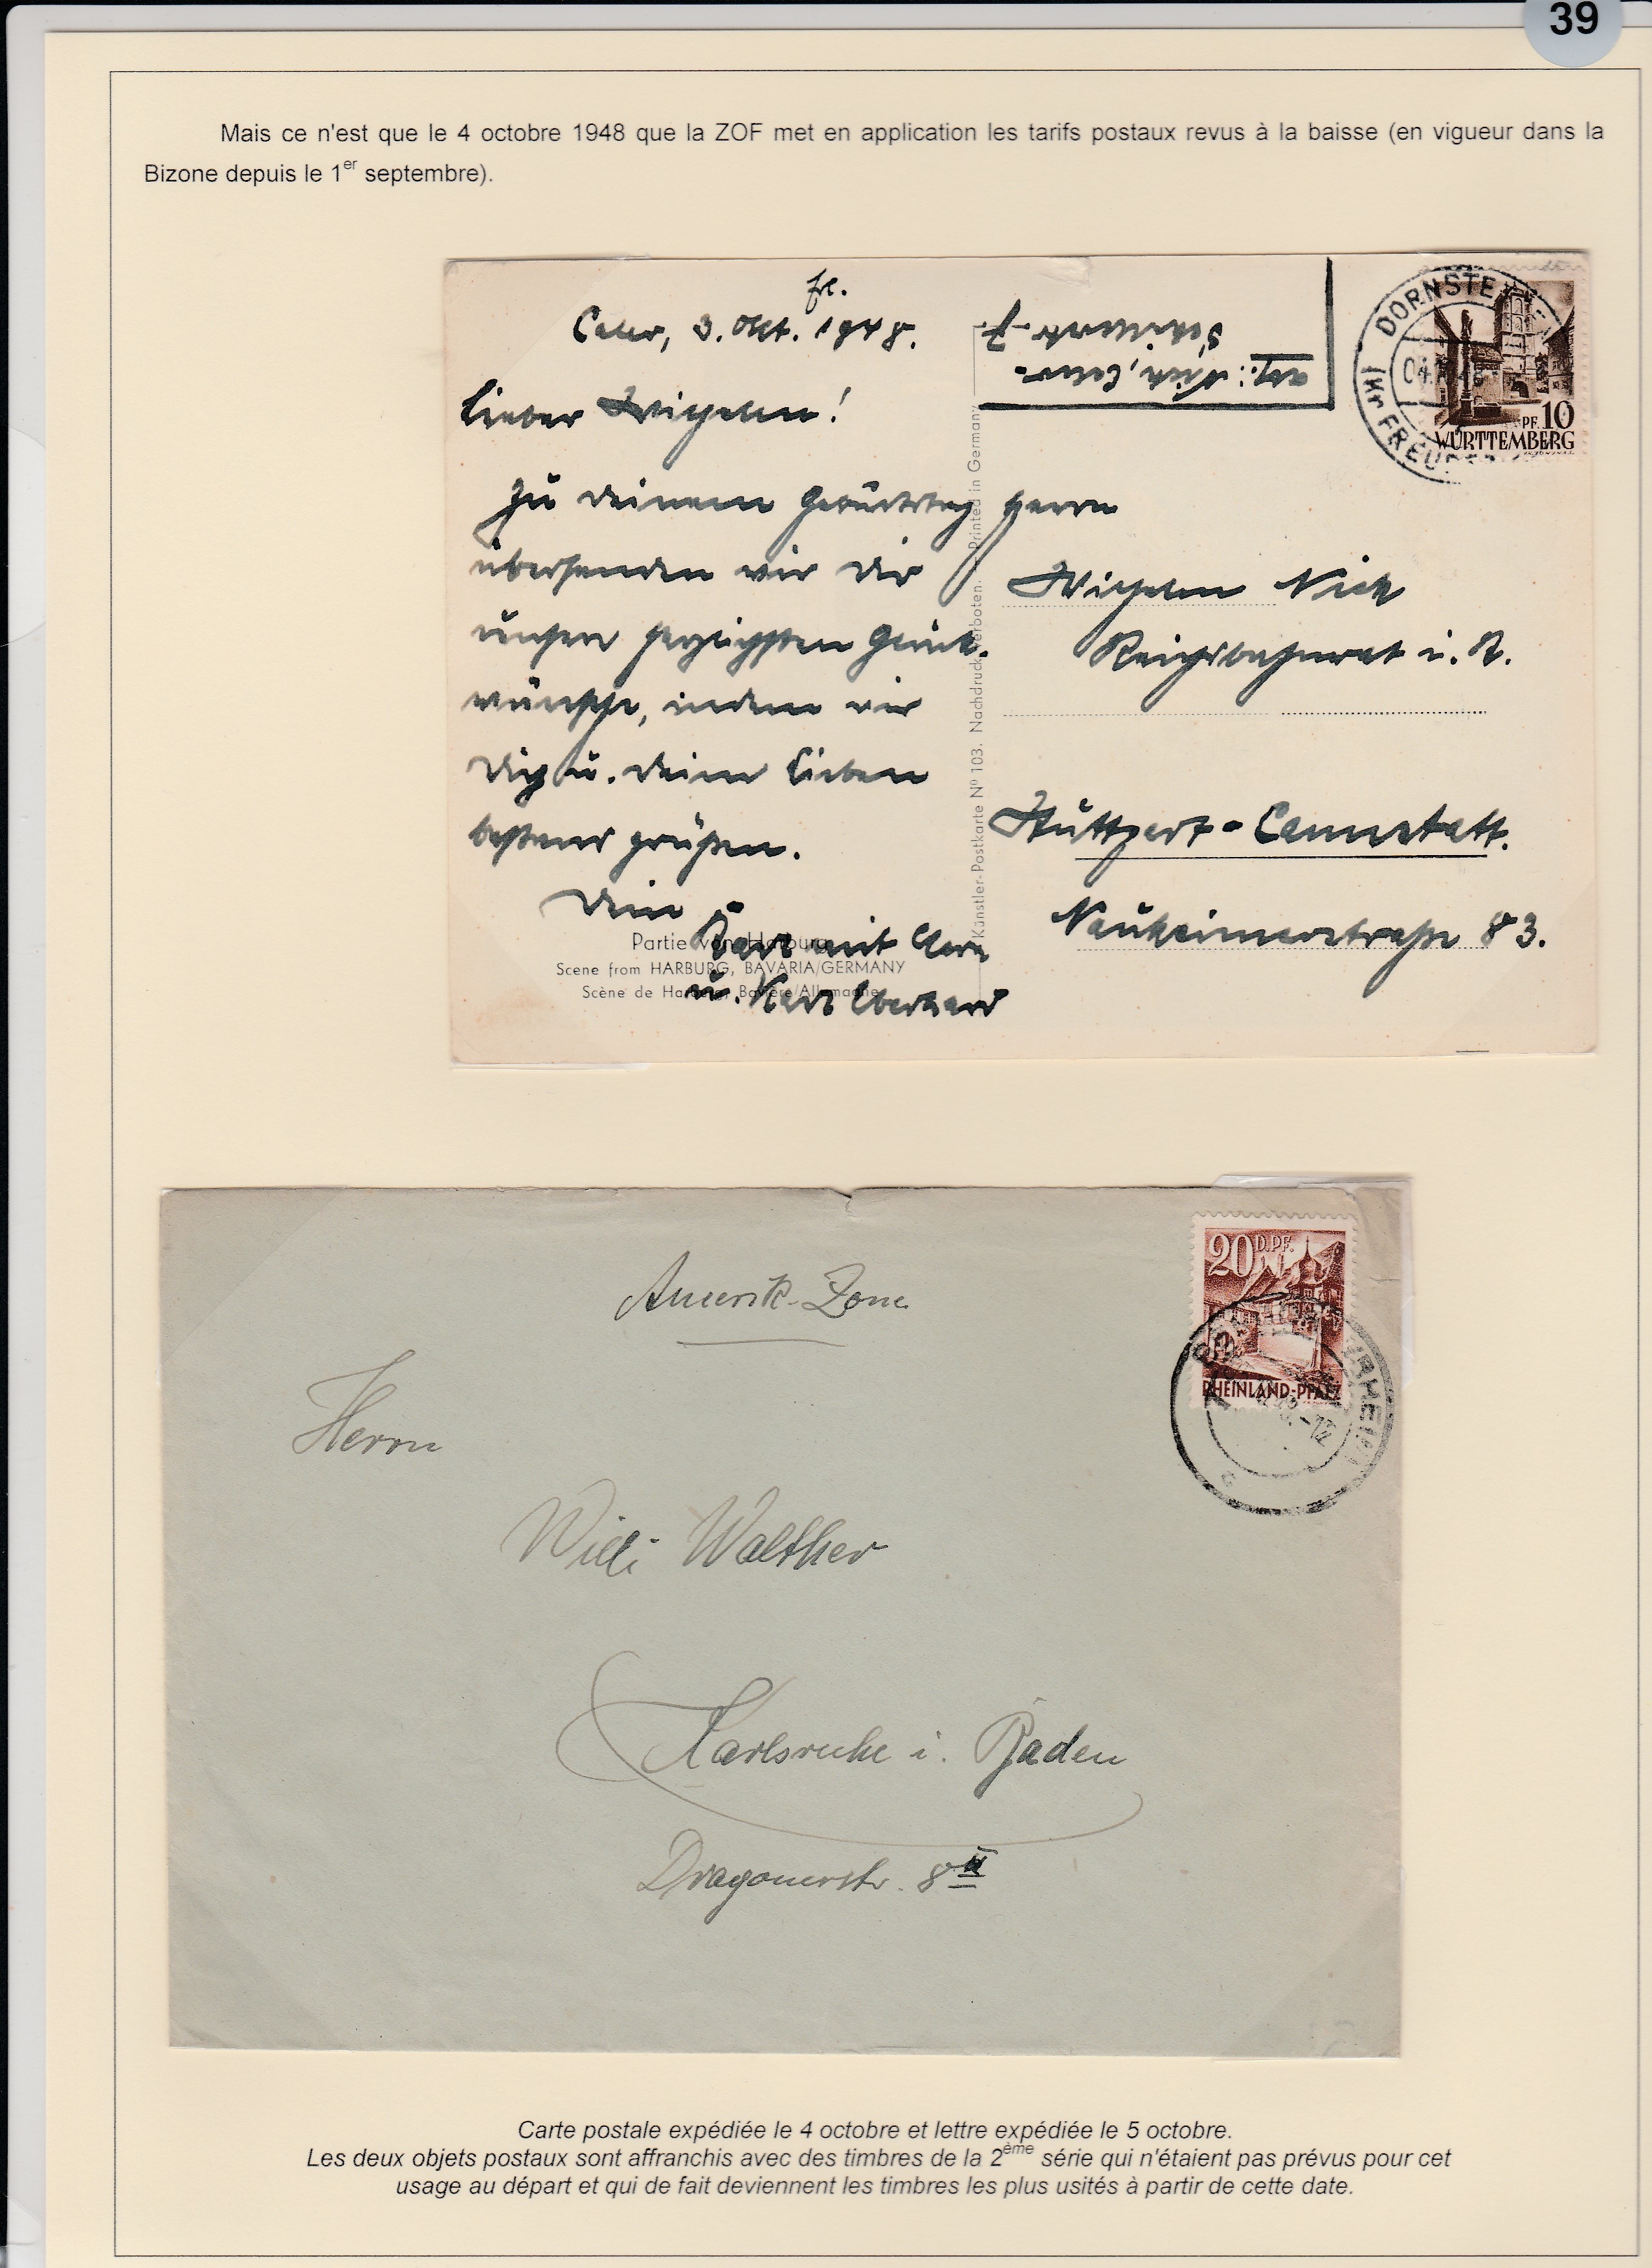 39
Mais ce n'est que le 4 octobre 1948 que la ZOF met en application les tarifs postaux revus à la baisse (en vigueur dans la
Bizone depuis le 1er septembre).
Calw, 3. Okt. 1948.
Lieber Wilhelm!
Zu deinem Geburtstag
übersenden wir dir
unsere herzlichsten Glück-
wünsche, indem wir
dich u. deine Lieben
bestens grüßen.
Dein
Karl mit
u. Karl Eberhard
Partie von Harburg
Scene from HARBURG, BAVARIA/GERMANY
Scène de Harburg, Bavière/Allemagne
Künstler-Postkarte Nº 103. Nachdruck verboten. Printed in Germany
Abs.: Nick, Calw
7.
DORNSTE
(Kr FREUD
PF. 10
WÜRTTEMBERG
Herrn
Wilhelm Nick
Reichsbahnrat i. R.
Stuttgart-Cannstatt.
Nauheimerstraße 83.
20 D.PF.
RHEINLAND-PFALZ
Amerik. Zone
Herrn
Willi Walther
Karlsruhe i. Baden
Dragonerstr. 8 II
Carte postale expédiée le 4 octobre et lettre expédiée le 5 octobre.
Les deux objets postaux sont affranchis avec des timbres de la 2ème série qui n'étaient pas prévus pour cet
usage au départ et qui de fait deviennent les timbres les plus usités à partir de cette date.